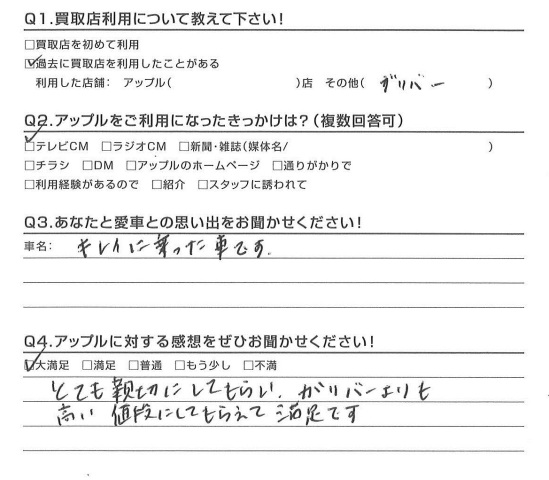 Q1.買取店利用について教えて下さい!
□買取店を初めて利用
☑過去に買取店を利用したことがある
利用した店舗: アップル( )店 その他( ガリバー )
Q2.アップルをご利用になったきっかけは?(複数回答可)
☑テレビCM □ラジオCM □新聞・雑誌(媒体名/ )
□チラシ □DM □アップルのホームページ □通りがかりで
□利用経験があるので □紹介 □スタッフに誘われて
Q3.あなたと愛車との思い出をお聞かせください!
車名: キレイに乗った車です.
Q4.アップルに対する感想をぜひお聞かせください!
☑大満足 □満足 □普通 □もう少し □不満
とても親切にしてもらい、ガリバーよりも
高い値段にしてもらえて満足です